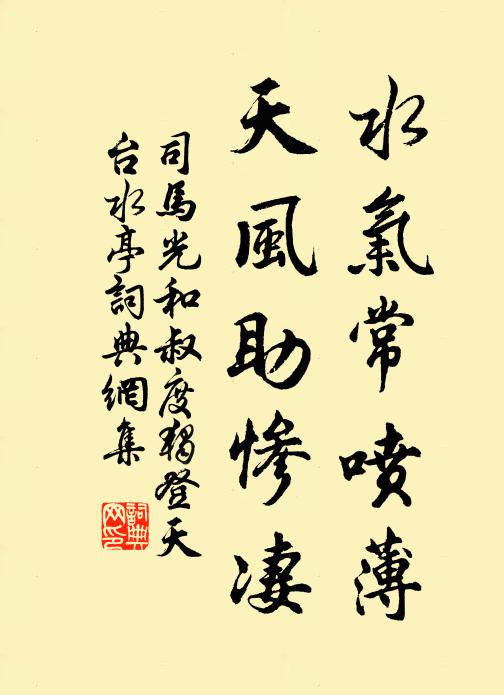 水氣常噴薄
天風助慘淒
司馬光和叔度獨登天
台水亭詞典網集
詞典
网印